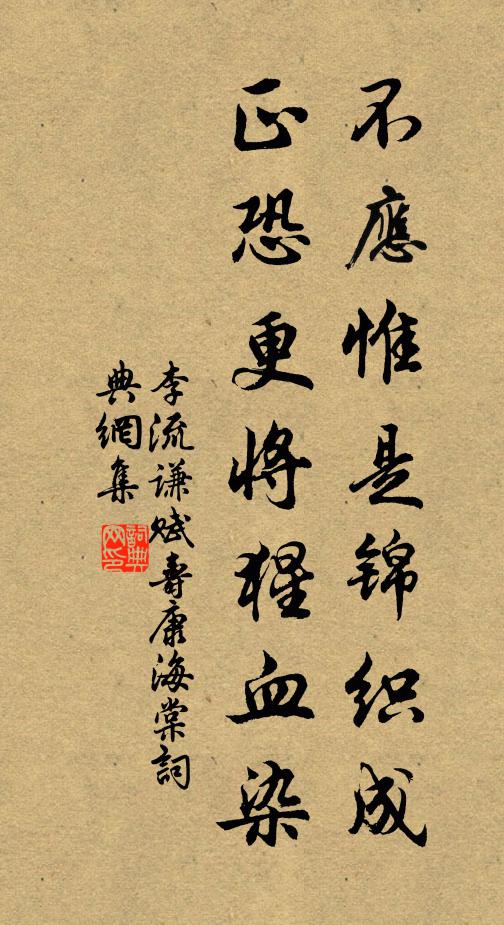 不應惟是錦織成
正恐更將猩血染
李流謙賦壽康海棠詞
典網集
詞典網印